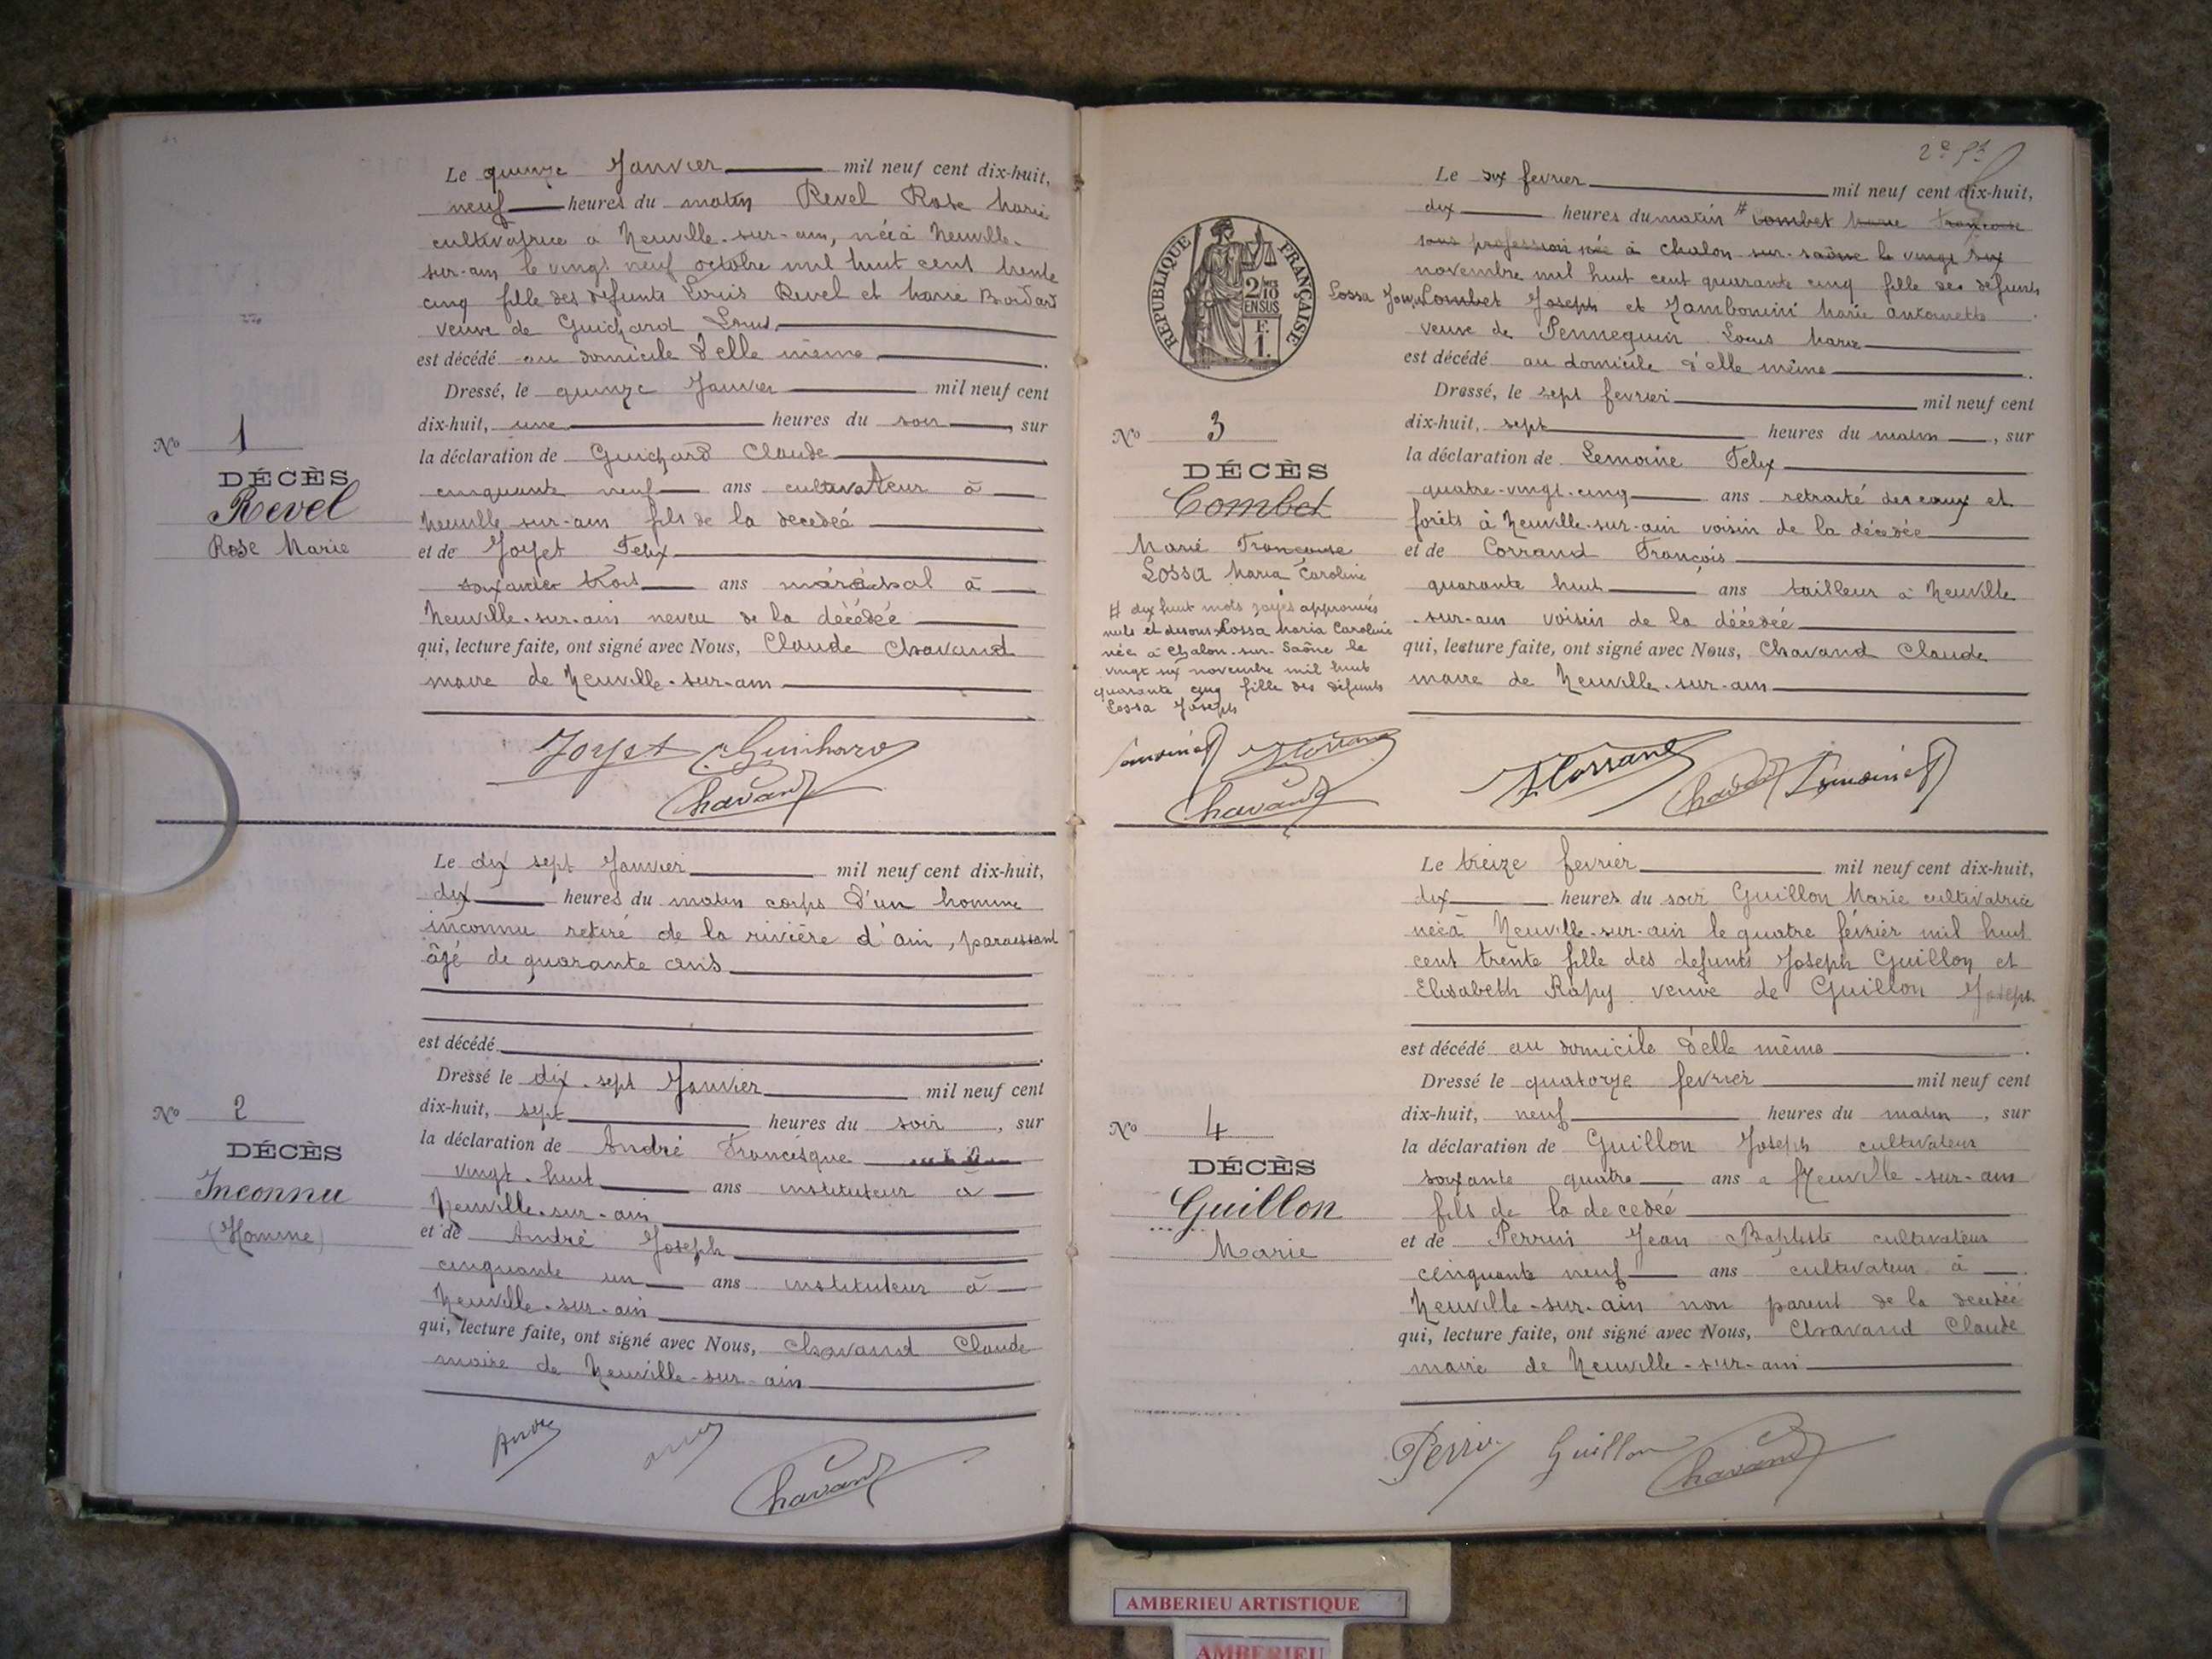 Le quinze Janvier mil neuf cent dix-huit,
neuf heures du matin Revel Rose Marie
cultivatrice a Neuville-sur-ain, née à Neuville-
sur-ain le vingt neuf octobre mil huit cent trente
cinq fille des défunts Louis Revel et Marie
veuve de Guichard Louis
est décédé au domicile d'elle même
Dressé, le quinze Janvier mil neuf cent
dix-huit, une heures du soir, sur
la déclaration de Guichard Claude
cinquante neuf ans cultivateur à
Neuville-sur-ain fils de la decedeé
et de Joyet Felix
soixante trois ans maréchal à
Neuville-sur-ain neveu de la décédée
qui, lecture faite, ont signé avec Nous, Claude Chavand
maire de Neuville-sur-ain
No 1
DÉCÈS
Revel
Rose Marie
Joyet C. Guichard
Chavand
Le dix sept Janvier mil neuf cent dix-huit,
dix heures du matin corps d'un homme
inconnu retiré de la rivière d'ain, paraissant
âgé de quarante ans
est décédé
Dressé le dix-sept Janvier mil neuf cent
dix-huit, sept heures du soir, sur
la déclaration de André Francisque
vingt-huit ans instituteur à
Neuville-sur-ain
et de André Joseph
cinquante un ans instituteur à
Neuville-sur-ain
qui, lecture faite, ont signé avec Nous, Chavand Claude
maire de Neuville-sur-ain
No 2
DÉCÈS
Inconnu
(Homme)
Chavand
2e ft
RÉPUBLIQUE FRANÇAISE
2/10
EN SUS
F.
1.
Le six fevrier mil neuf cent dix-huit,
dix heures du matin # Combet Marie Françoise
sans profession née à Chalon-sur-saône le vingt six
novembre mil huit cent quarante cinq fille des défunts
Lossa Joseph Combet Joseph et Zambonini Marie antoinette
veuve de Pennequin Louis Marie
est décédé au domicile d'elle même
Dressé, le sept fevrier mil neuf cent
dix-huit, sept heures du matin, sur
la déclaration de Lemoine Felix
quatre-vingt-cinq ans retraité des eaux et
forêts à Neuville-sur-ain voisin de la décédée
et de Corrand François
quarante huit ans tailleur à Neuville
-sur-ain voisin de la décédeé
qui, lecture faite, ont signé avec Nous, Chavand Claude
maire de Neuville-sur-ain
No 3
DÉCÈS
Combet
Marie Françoise
Lossa Maria Caroline
# dix huit mots rayés approuvés
nuls et disons Lossa Maria Caroline
née à Chalon-sur-Saône le
vingt six novembre mil huit
quarante cinq fille des défunts
Lossa Joseph
Lemoine F. Corrand
Chavand
F. Corrand Chavand Lemoine F
Le treize fevrier mil neuf cent dix-huit,
dix heures du soir Guillon Marie cultivatrice
née à Neuville-sur-ain le quatre février mil huit
cent trente fille des defunts Joseph Guillon et
Elisabeth Rapy veuve de Guillon Joseph
est décédé au domicile d'elle même
Dressé le quatorze fevrier mil neuf cent
dix-huit, neuf heures du matin, sur
la déclaration de Guillon Joseph cultivateur
soixante quatre ans a Neuville-sur-ain
fils de la decedeé
et de Perrin Jean Baptiste cultivateur
cinquante neuf ans cultivateur à
Neuville-sur-ain non parent de la decedeé
qui, lecture faite, ont signé avec Nous, Chavand Claude
maire de Neuville-sur-ain
No 4
DÉCÈS
Guillon
Marie
Perrin Guillon Chavand
AMBERIEU ARTISTIQUE
AMBERIEU